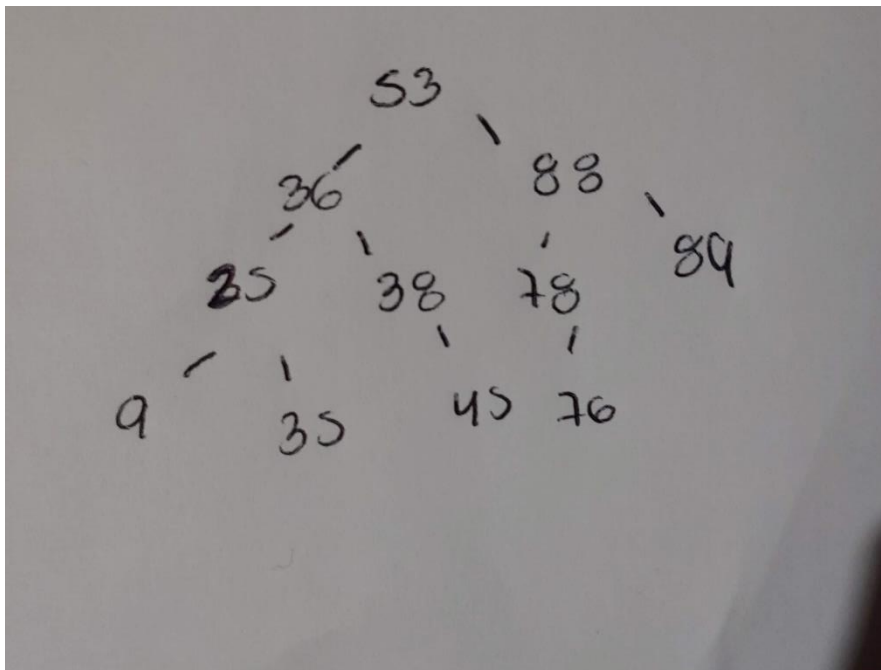 53
36 88
25 38 78 89
9 35 45 76